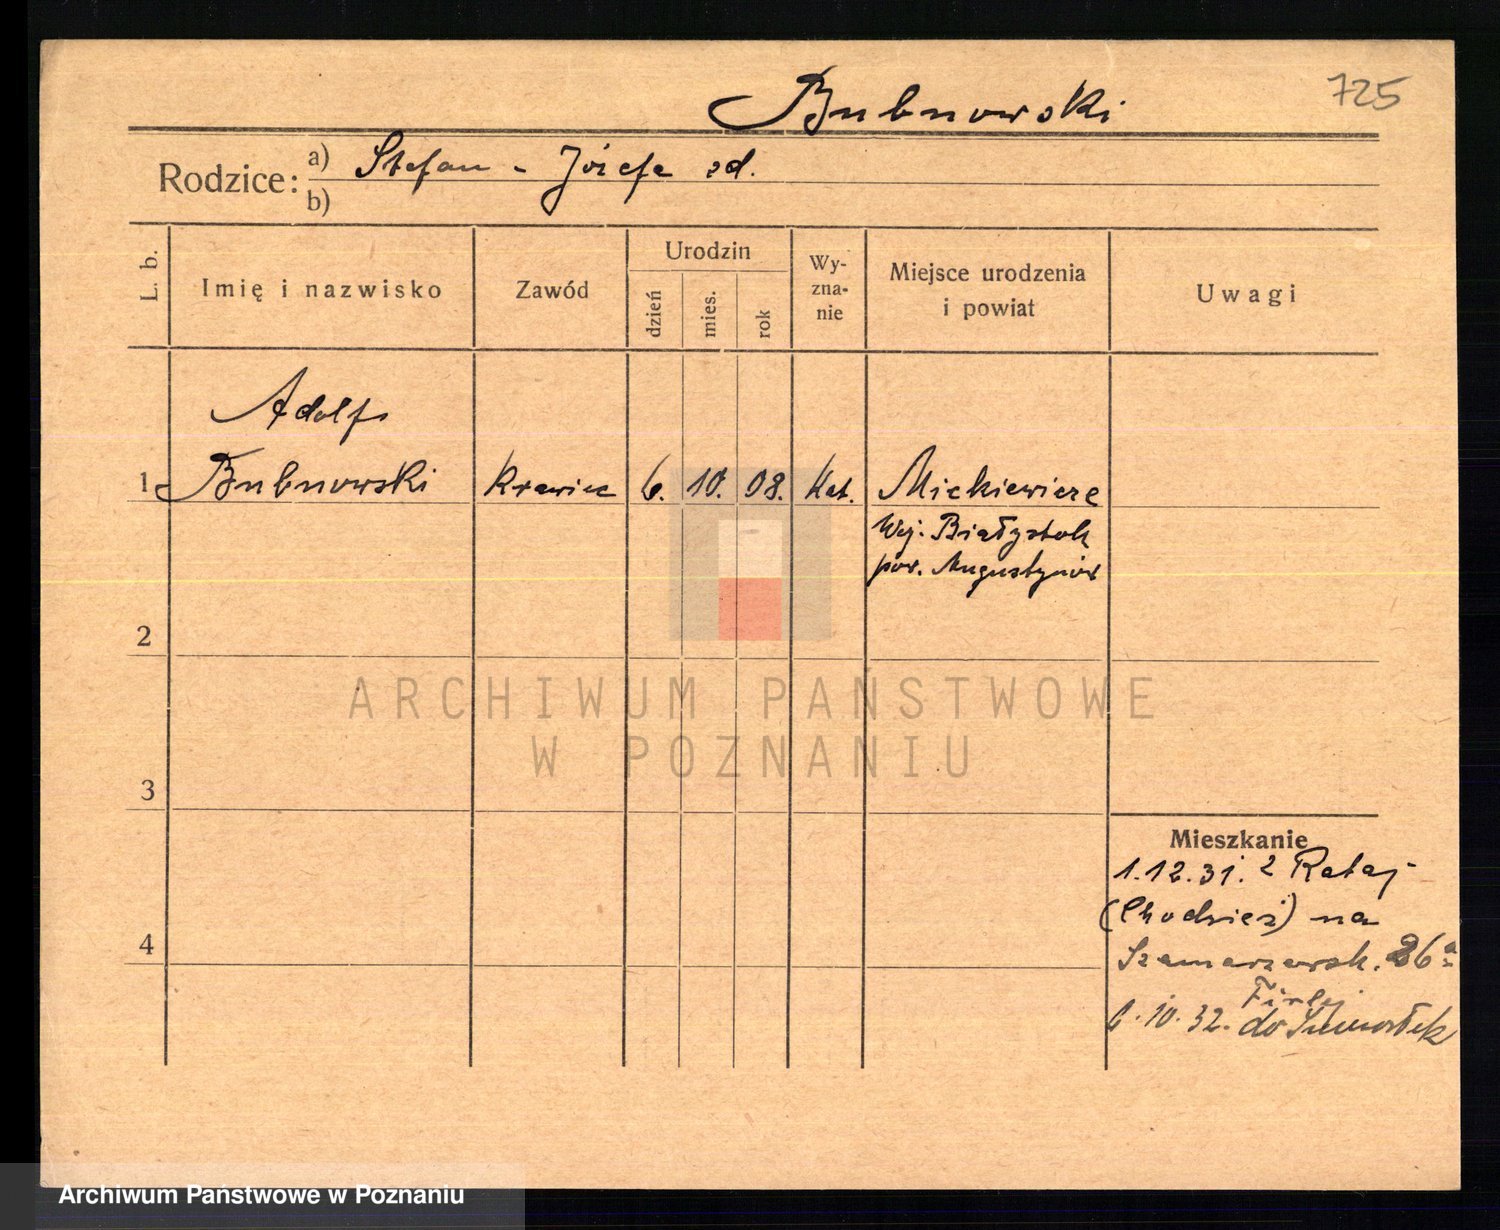 Bubnowski 725
Rodzice: a) Stefan - Józefa zd.
b)
L. b. Imię i nazwisko Zawód Urodzin dzień mies. rok Wy-zna-nie Miejsce urodzenia i powiat Uwagi
Adolf
1 Bubnowski Krawiec 6. 10. 08. Kat. Mickiewicze
Woj. Białystok
pow. Augustynów
2
ARCHIWUM PAŃSTWOWE
W POZNANIU
3
Mieszkanie
1.12.31. z Rataj
(Chodzież) na
4
Szamarzewsk. 26a
Firlej
6.10.32. do
Archiwum Państwowe w Poznaniu